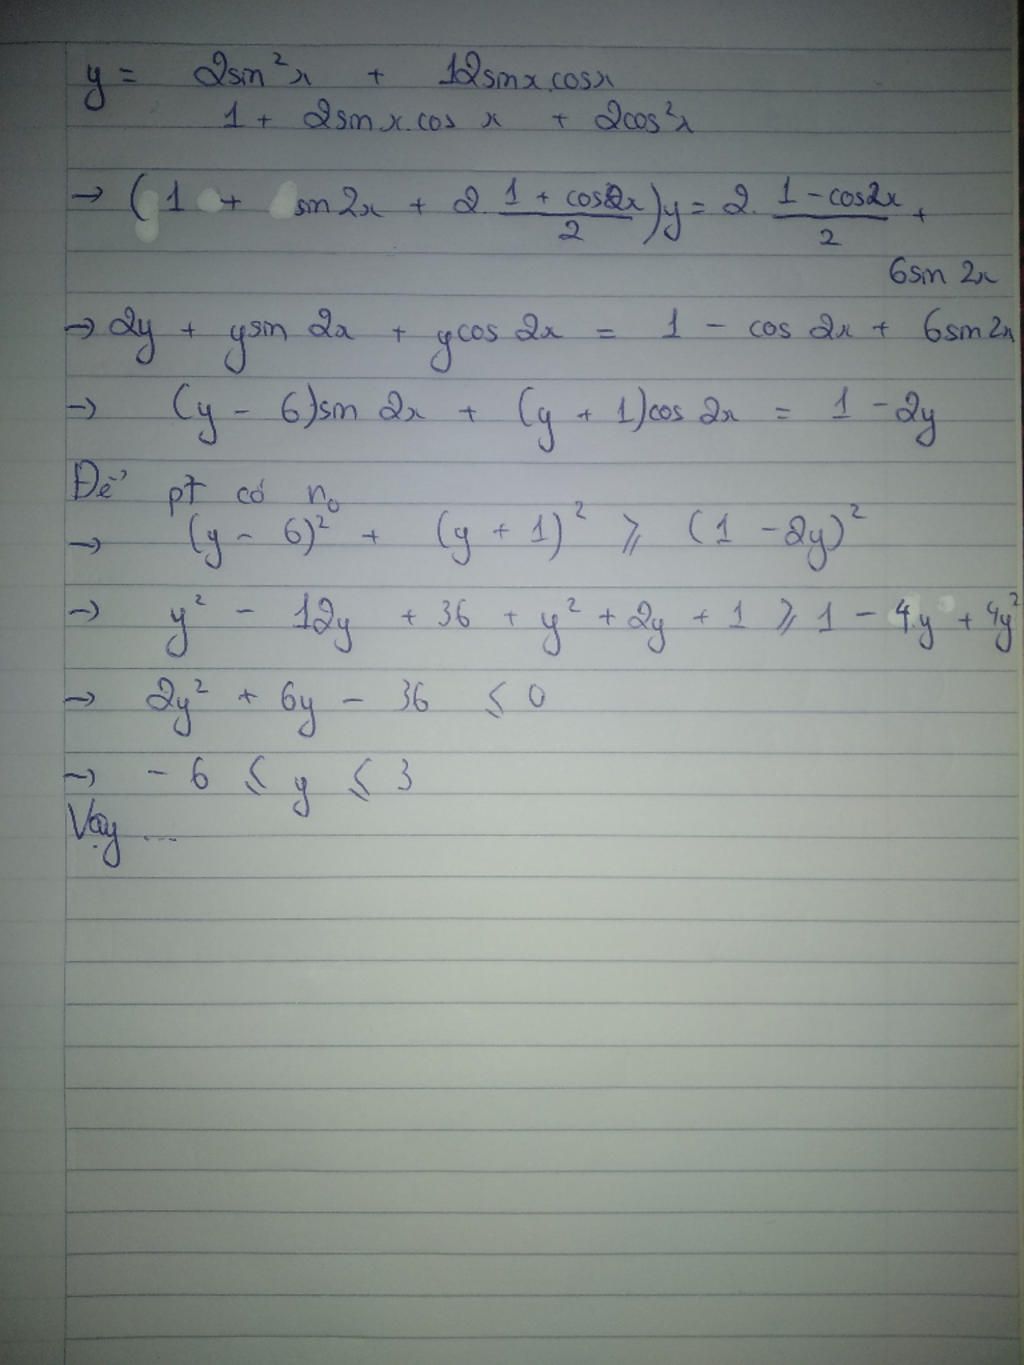 y = 2sin²x + 12sinx.cosx
1 + 2sinx.cos x + 2cos²x
→ (1 + sin2x + 2. (1 + cos2x)/2)y = 2. (1 - cos2x)/2 +
6sin 2x
→ 2y + ysin 2x + ycos 2x = 1 - cos 2x + 6sin2x
→ (y - 6)sin 2x + (y + 1)cos 2x = 1 - 2y
Để pt có n₀
→ (y - 6)² + (y + 1)² ⩾ (1 - 2y)²
→ y² - 12y + 36 + y² + 2y + 1 ⩾ 1 - 4y + 4y²
→ 2y² + 6y - 36 ⩽ 0
→ - 6 ⩽ y ⩽ 3
Vậy ...